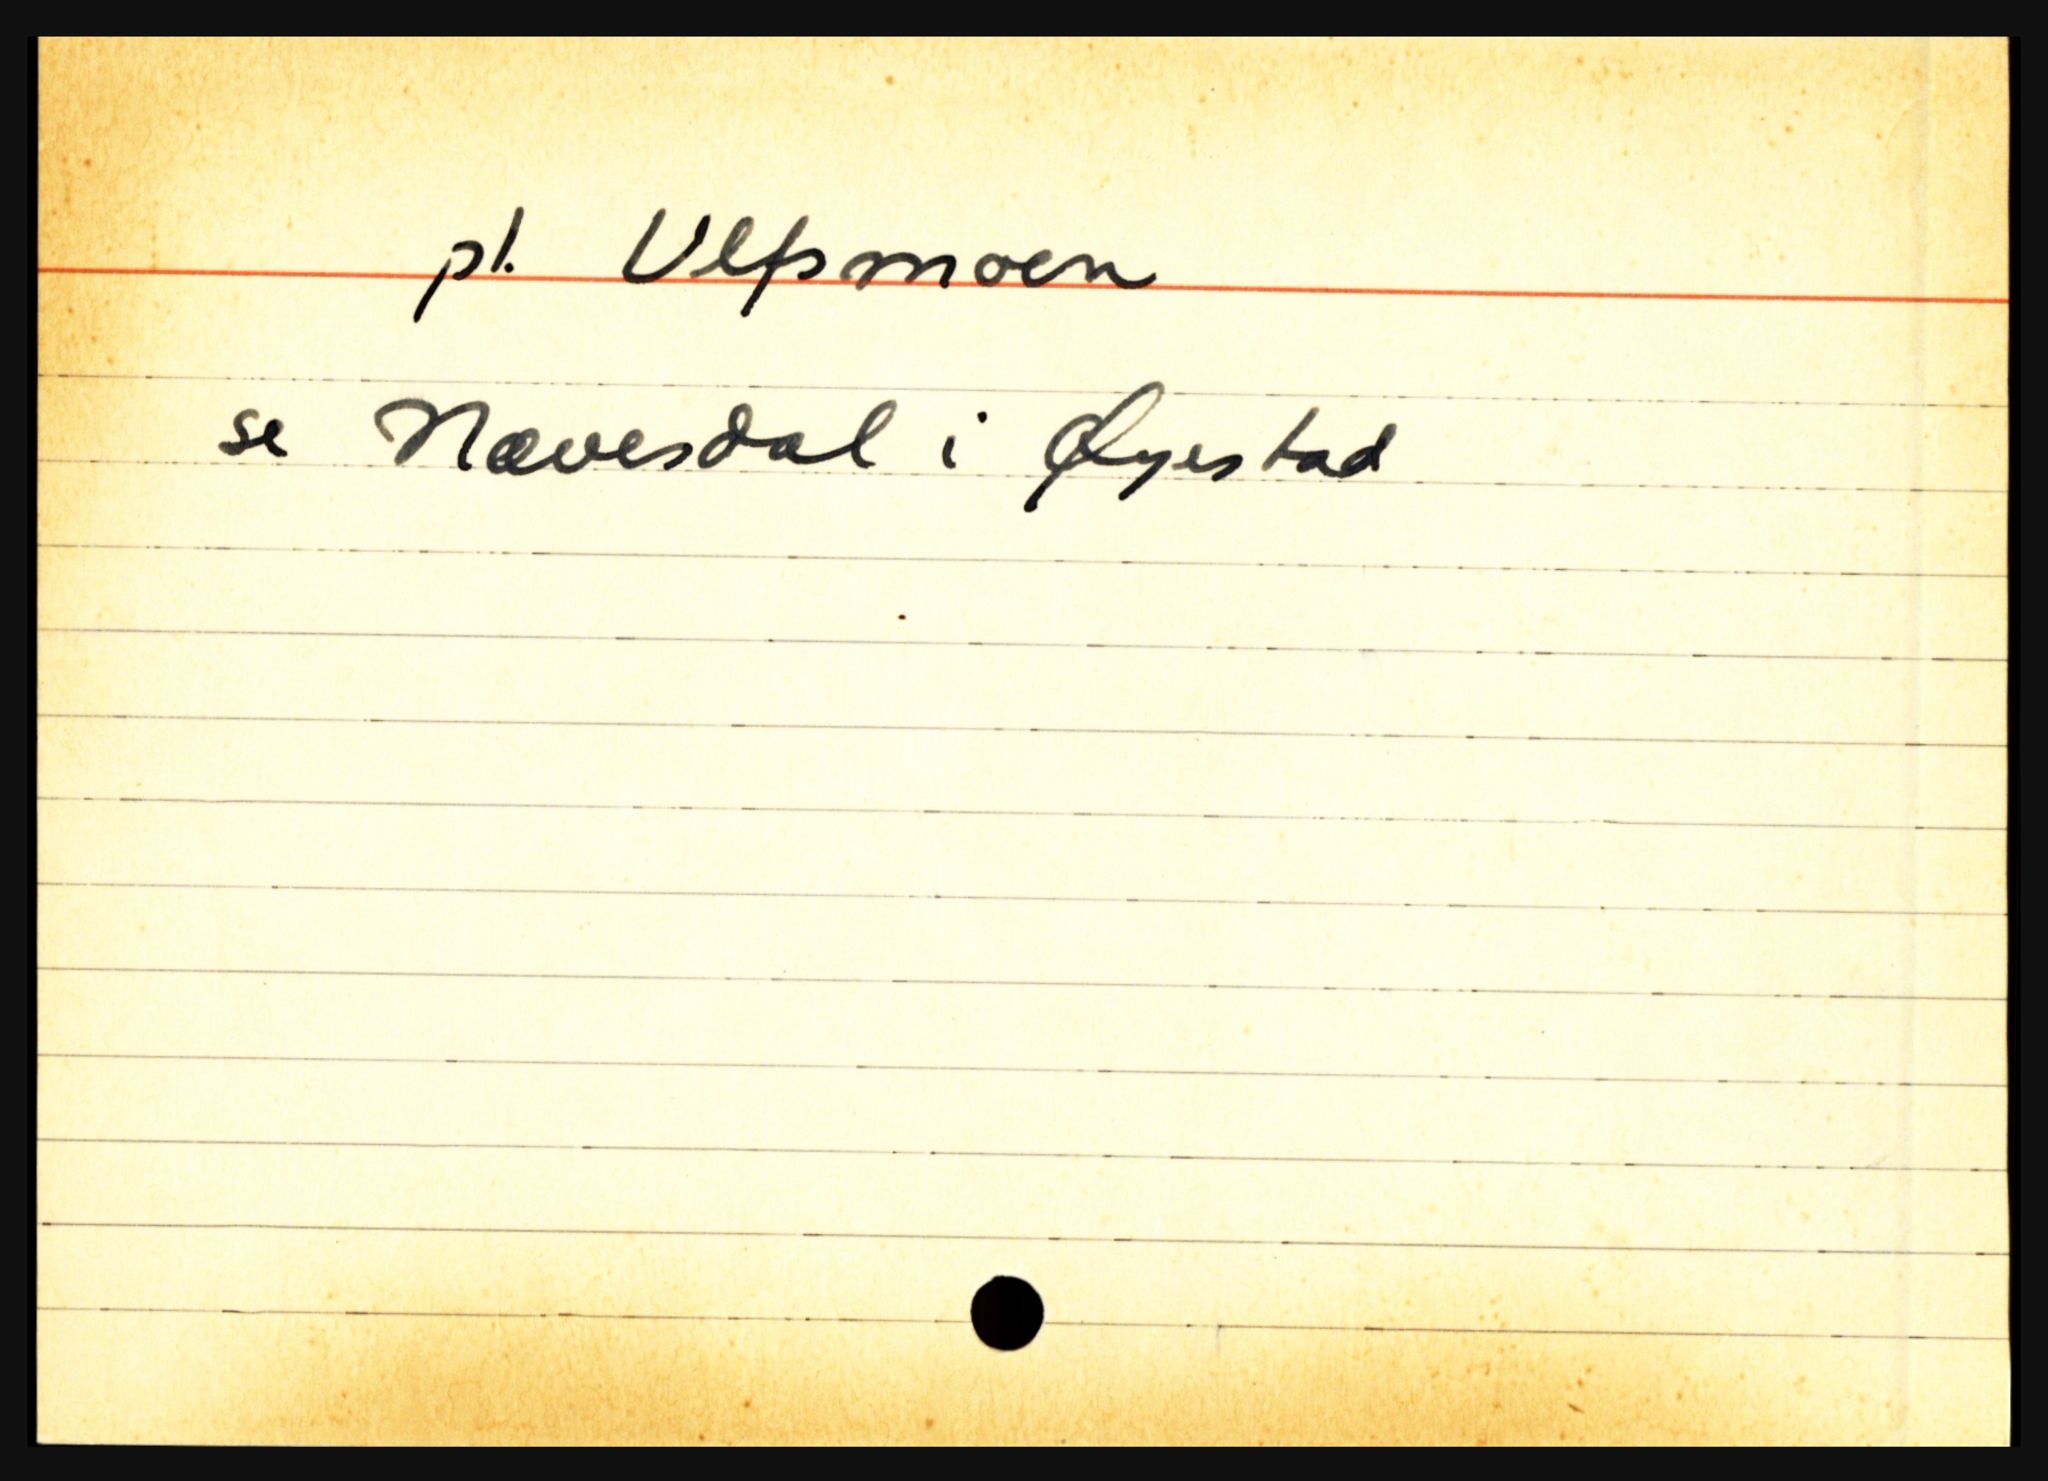 pl. Ulfsmoen
se Nævesdal i Øyestad